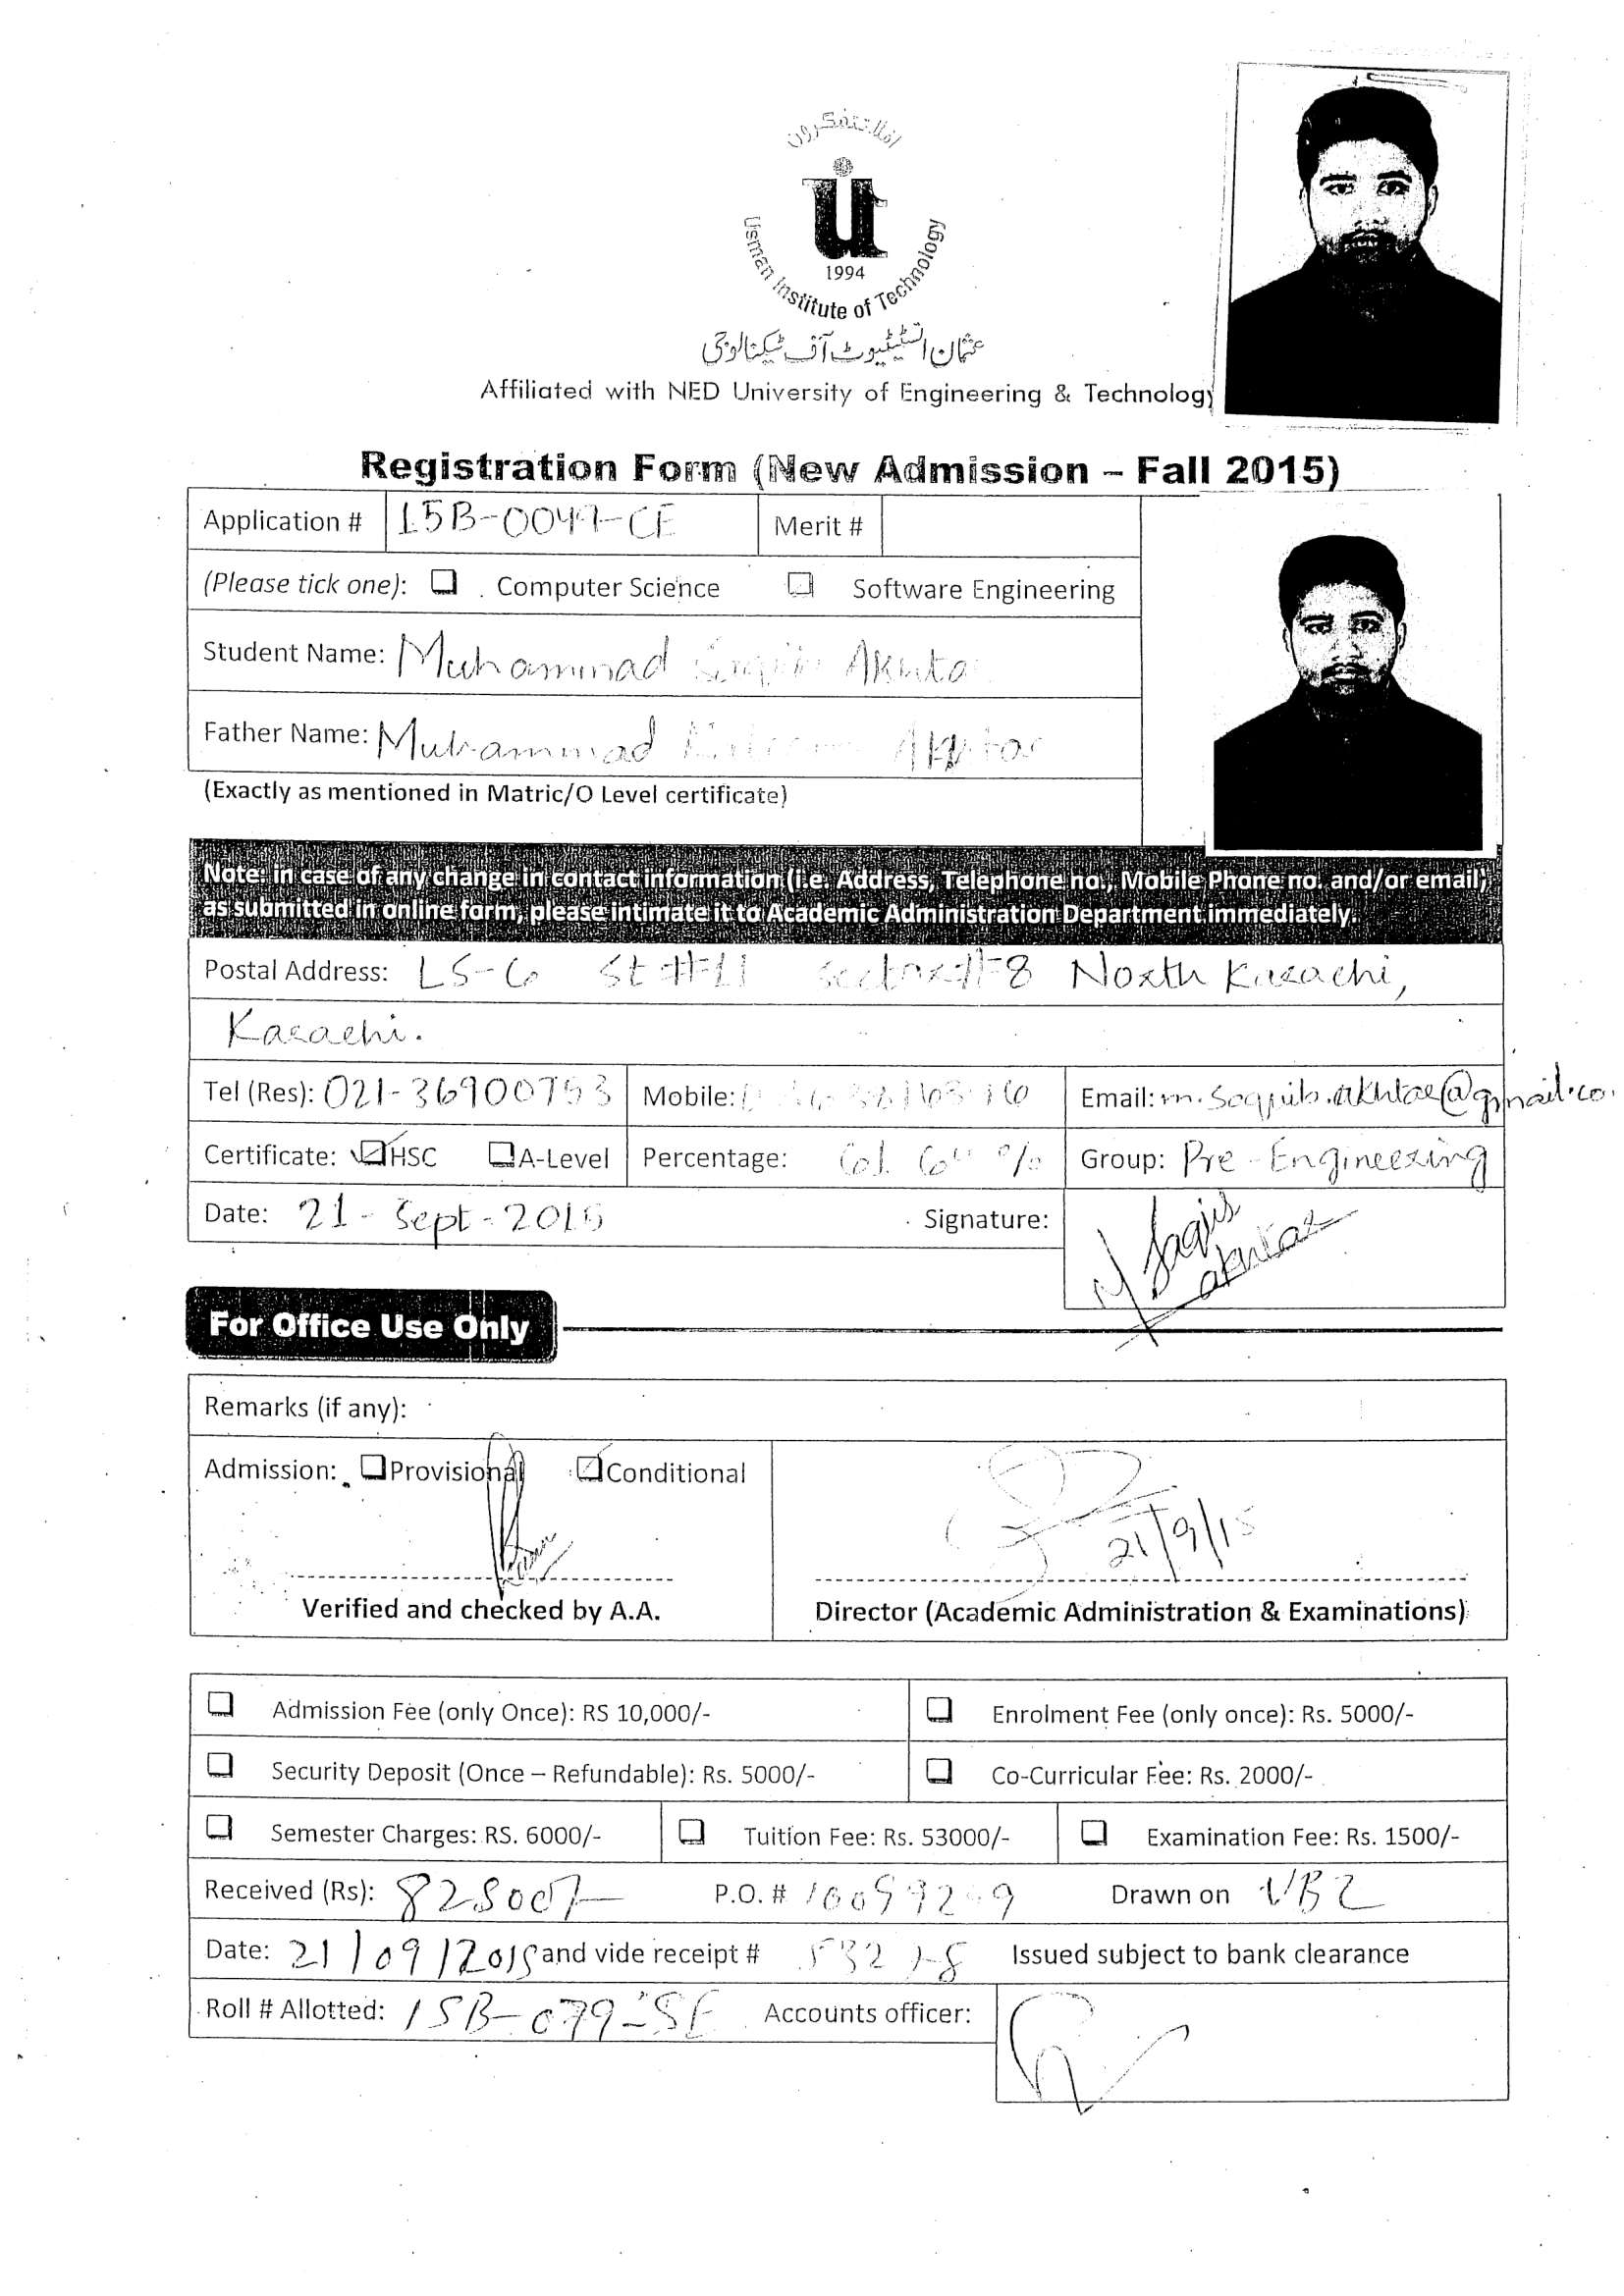 افلا تتفكرون
uit
1994
Usman Institute of Technology
عثمان انسٹیٹیوٹ آف ٹیکنالوجی
Affiliated with NED University of Engineering & Technology
Registration Form (New Admission – Fall 2015)
Application # Merit #
(Please tick one): Computer Science Software Engineering
Student Name: Muhammad Saqib Akhta
Father Name: Muhammad
(Exactly as mentioned in Matric/O Level certificate)
Note: in case of any change in contact information (i.e. Address, Telephone no., Mobile Phone no. and/or email)
as submitted in online form, please intimate it to Academic Administration Department immediately.
Postal Address: LS-6 St #11 sector#8 North Karachi,
Karachi.
Tel (Res): 021-36900753 Mobile: Email: m.saquib.akhtar@gmail.co.
Certificate: HSC A-Level Percentage: Group: Pre-Engineering
Date: 21-Sept-2015 Signature: M Saqib
akhtar
For Office Use Only
Remarks (if any):
Admission: Provisional Conditional
21/9/15
Verified and checked by A.A. Director (Academic Administration & Examinations)
Admission Fee (only Once): RS 10,000/- Enrolment Fee (only once): Rs. 5000/-
Security Deposit (Once – Refundable): Rs. 5000/- Co-Curricular Fee: Rs. 2000/-
Semester Charges: RS. 6000/- Tuition Fee: Rs. 53000/- Examination Fee: Rs. 1500/-
Received (Rs): 82500/- P.O. # Drawn on
Date: 21/09/2015 and vide receipt # Issued subject to bank clearance
Roll # Allotted: 15B-079-SE Accounts officer: